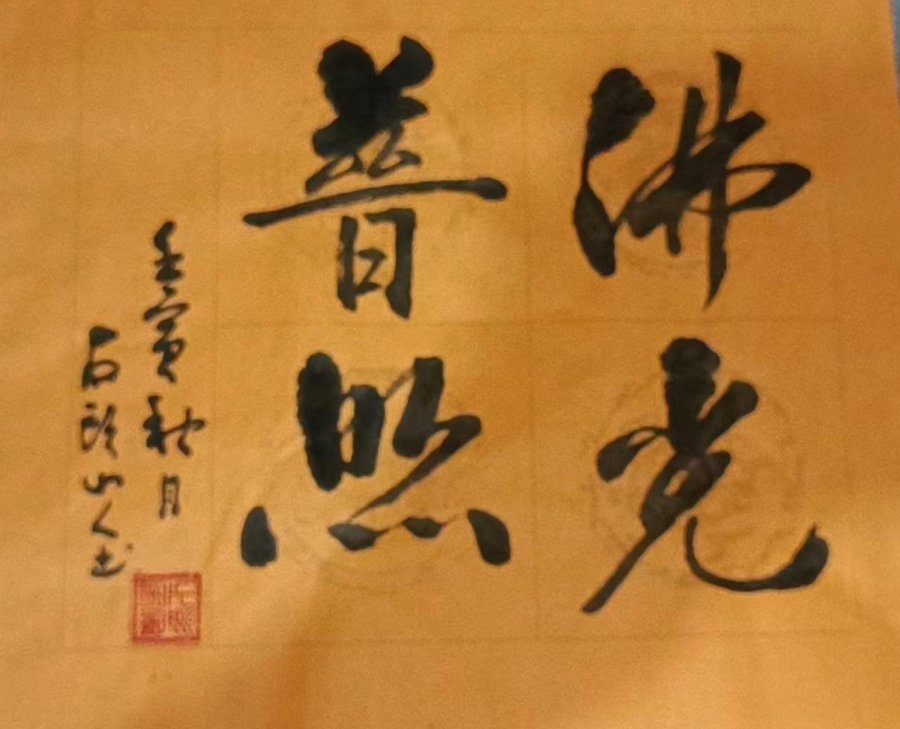 佛光
普照
壬寅秋月
石頭山人书